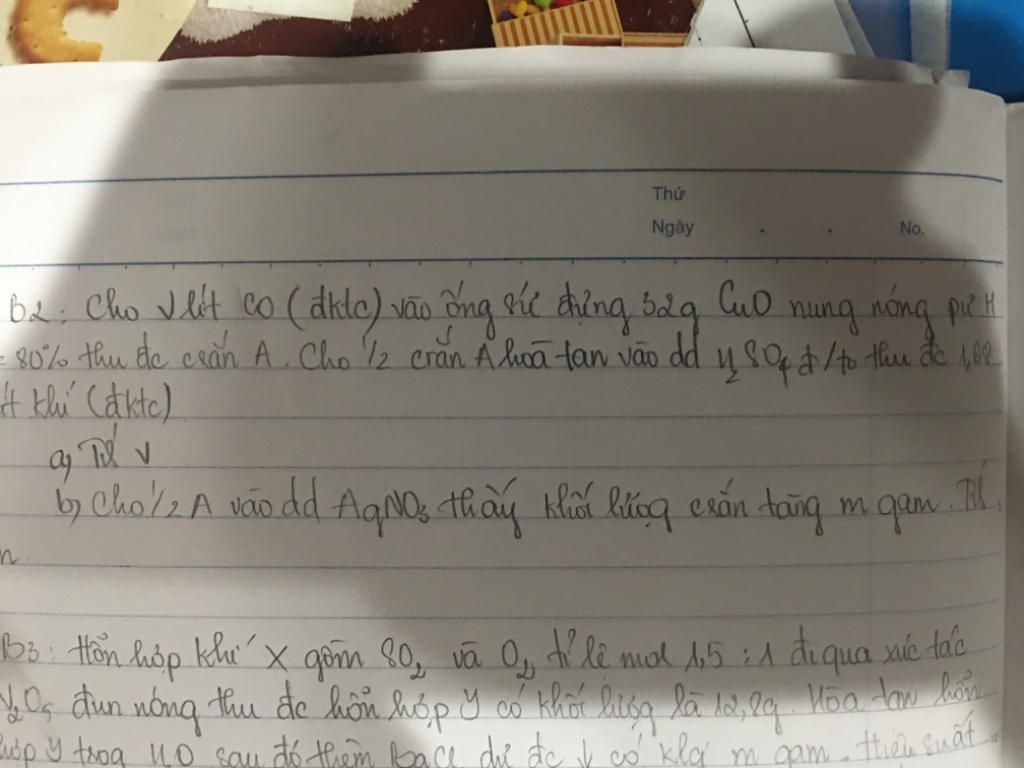 Thứ
Ngày . . No.
B2: Cho V lít CO (đktc) vào ống sứ đựng 32g CuO nung nóng pư H
= 80% thu đc crắn A. Cho 1/2 crắn A hoà tan vào dd H2SO4 đ/to thu đc 1,68
ít khí (đktc)
a) Tí V
b) Cho 1/2 A vào dd AgNO3 thấy khối lượng crắn tăng m gam. Tí
B3: Hỗn hợp khí X gồm SO2 và O2 tỉ lệ mol 1,5 : 1 đi qua xúc tác
V2O5 đun nóng thu đc hỗn hợp Y có khối lượng là 12,8g. Hòa tan hỗn
hợp Y trog H2O sau đó thêm BaCl2 dư đc ↓ có klg m gam. Hiệu suất